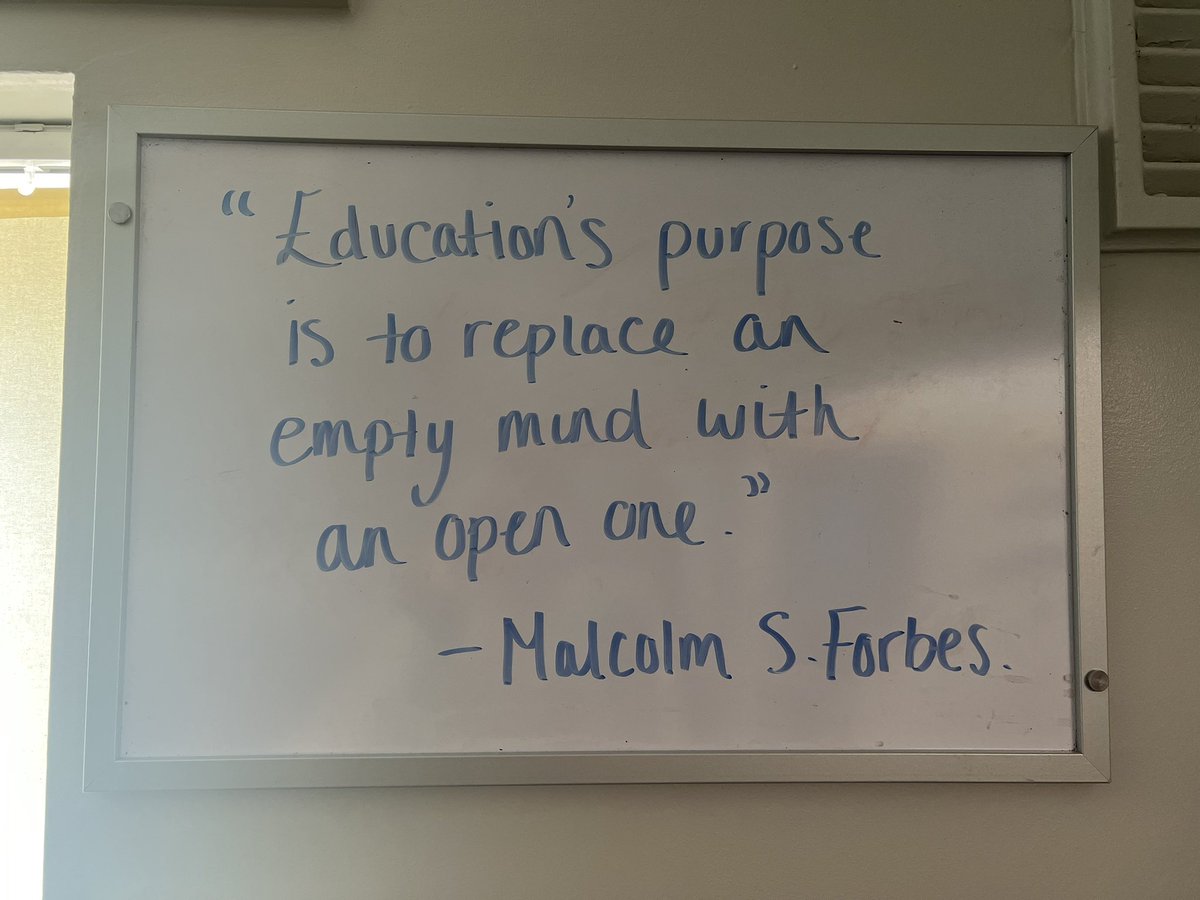 “Education's purpose
is to replace an
empty mind with
an open one.”
- Malcolm S. Forbes.